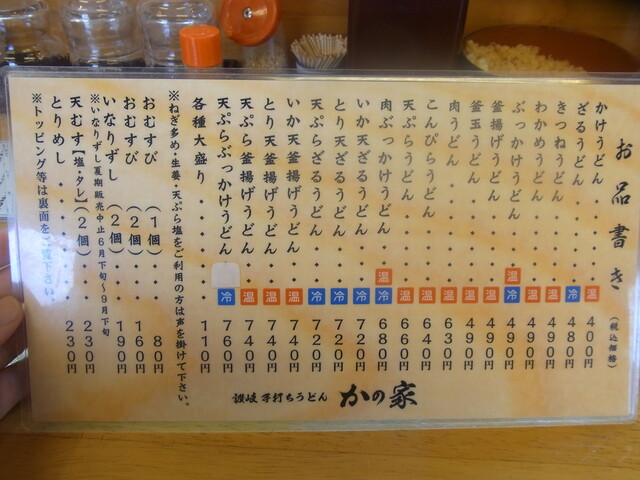 お品書き（税込価格）
かけうどん・・・・・温 400円
ざるうどん・・・・・冷 480円
きつねうどん・・・・温 490円
わかめうどん・・・・温 490円
ぶっかけうどん・・・温冷 490円
釜揚げうどん・・・・温 490円
釜玉うどん・・・・・温 490円
肉うどん・・・・・・温 630円
こんぴらうどん・・・温 640円
天ぷらうどん・・・・温 660円
肉ぶっかけうどん・・温冷 680円
いか天ざるうどん・・冷 720円
とり天ざるうどん・・冷 720円
天ぷらざるうどん・・冷 720円
いか天釜揚げうどん・温 740円
とり天釜揚げうどん・温 740円
天ぷら釜揚げうどん・温 740円
天ぷらぶっかけうどん 冷 760円
各種大盛り・・・・・・110円
※ねぎ多め・生姜・天ぷら塩をご利用の方は声を掛けて下さい。
おむすび（1個）・・・80円
おむすび（2個）・・・160円
いなりずし（2個）・・・190円
※いなりずし夏期販売中止6月下旬～9月下旬
天むす【塩・タレ】（2個）・・230円
とりめし・・・・・・230円
※トッピング等は裏面をご覧下さい
讃岐手打ちうどん かの家